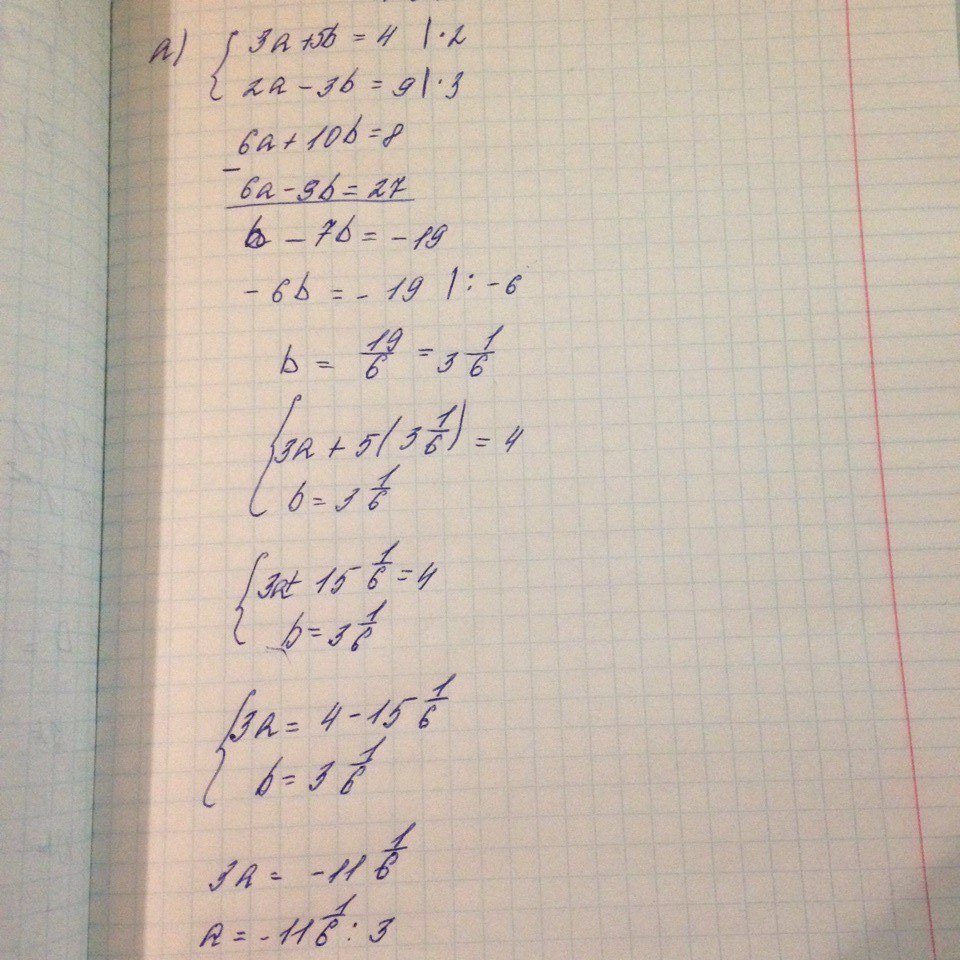 а) { 3a+5b = 4 |·2
2a - 3b = 9 |·3
6a + 10b = 8
-
6a - 9b = 27
b - 7b = -19
-6b = -19 |: -6
b = 19/6 = 3 1/6
{ 3a + 5(3 1/6) = 4
b = 3 1/6
{ 3a + 15 1/6 = 4
b = 3 1/6
{ 3a = 4 - 15 1/6
b = 3 1/6
3a = -11 1/6
a = -11 1/6 : 3